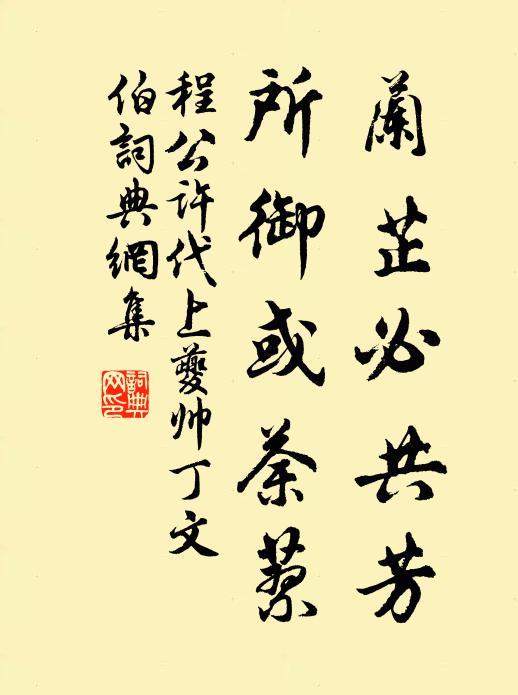 蘭芷必共芳
所御或荼
程公許代上夔帅丁文
伯詞典網集
詞典网印